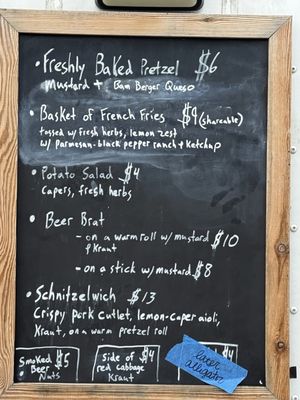 • Freshly Baked Pretzel $6
Mustard + Bam Berger Queso
• Basket of French Fries $9 (shareable)
tossed w/ fresh herbs, lemon zest
w/ parmesan-black pepper ranch + ketchup
• Potato Salad $4
Capers, fresh herbs
• Beer Brat
- on a warm roll w/ mustard $10
& Kraut
- on a stick w/ mustard $8
• Schnitzelwich $13
Crispy pork cutlet, lemon-caper aioli,
Kraut, on a warm pretzel roll
Smoked $5
• Beer
Nuts
side of $4
red cabbage
Kraut
$4
later
alligator